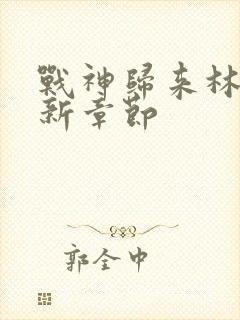 戰神歸來林
新章節
郭全中